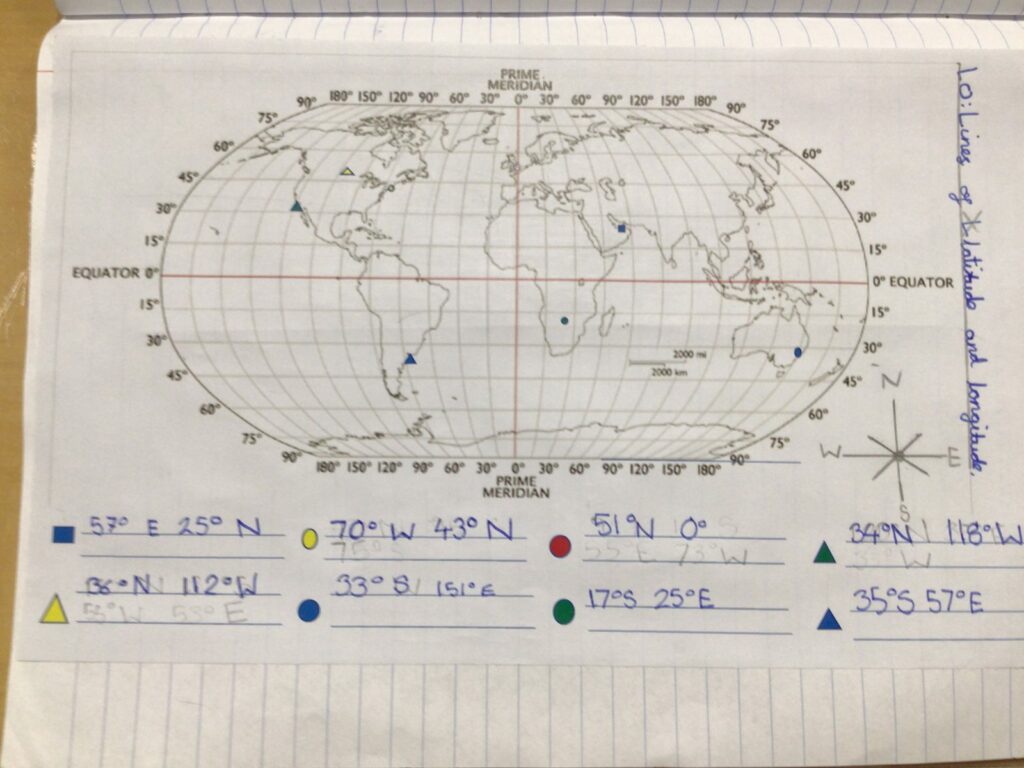 LO: Lines of latitude and longitude.
PRIME
MERIDIAN
90° 180° 150° 120° 90° 60° 30° 0° 30° 60° 90° 120° 150° 180° 90°
75° 75°
60° 60°
45° 45°
30° 30°
15° 15°
EQUATOR 0° 0° EQUATOR
15° 15°
30° 30°
2000 mi
2000 km
45° 45°
60° 60°
75° 75°
90° 180° 150° 120° 90° 60° 30° 0° 30° 60° 90° 120° 150° 180° 90°
PRIME
MERIDIAN
N
W E
S
57° E 25° N
70° W 43° N
51°N 0°
34°N 118°W
36°N 112°W
33° S 151°E
17°S 25°E
35°S 57°E